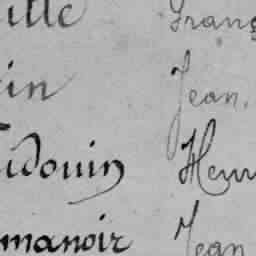 ille Franç
in Jean,
udouin Henr
manoir Jean